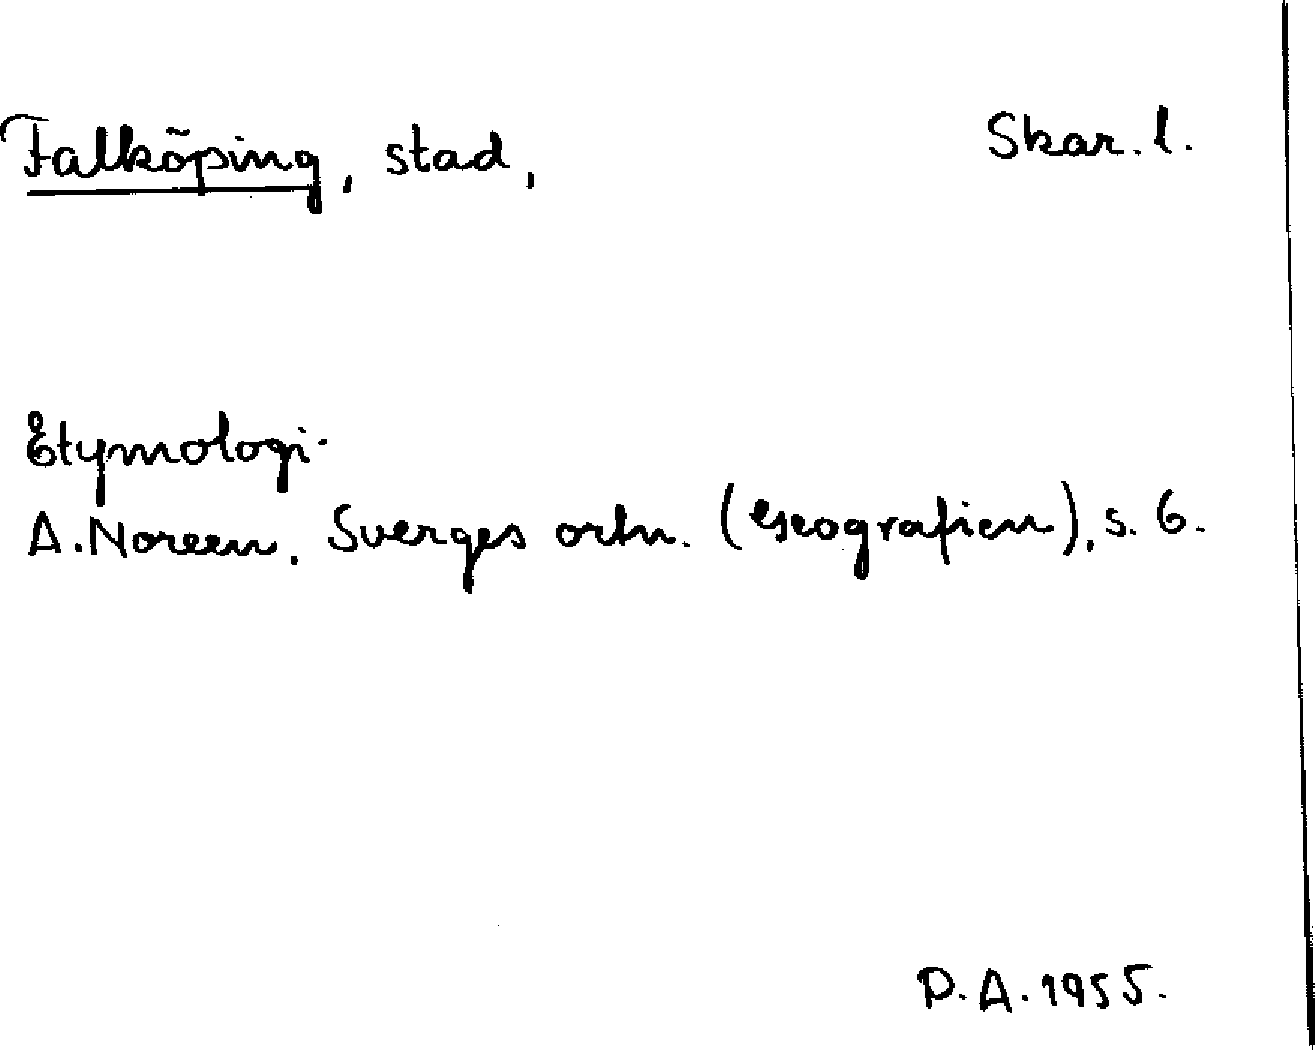 Falköping, stad, Skar. l.
Etymologi.
A. Noreen, Sverges ortn. (Geografien), s. 6.
D. A. 1955.